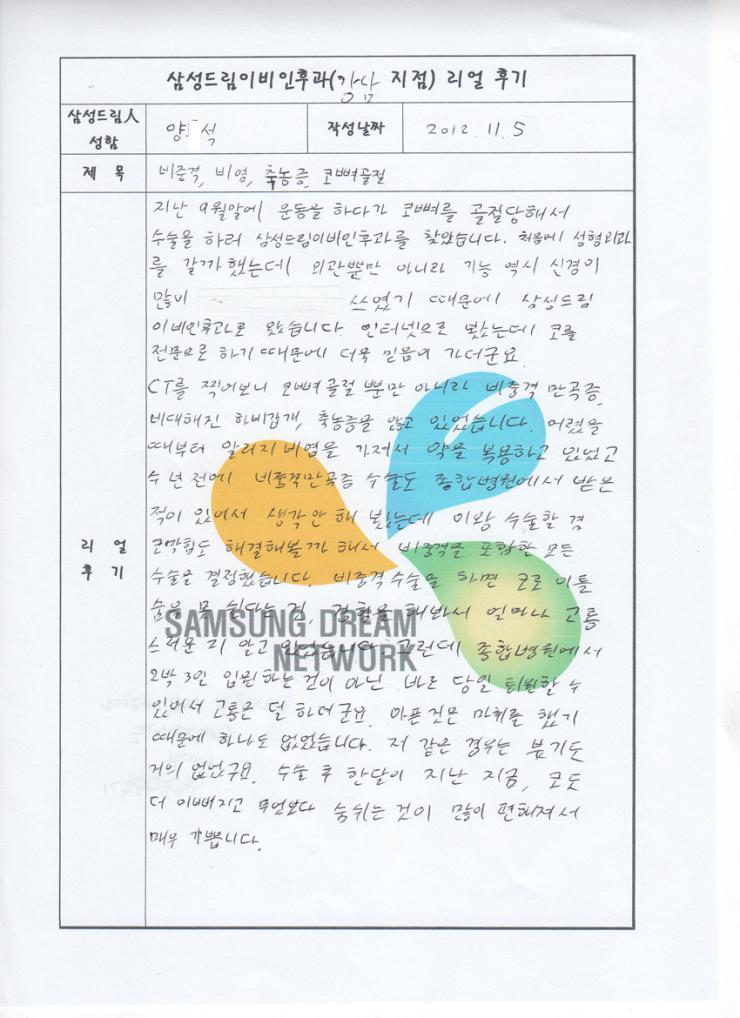 삼성드림이비인후과(강남 지점) 리얼 후기
삼성드림人 성함
양 석
작성날짜
2012. 11. 5
제 목
비중격, 비염, 축농증, 코뼈골절
리 얼 후 기
지난 9월말에 운동을 하다가 코뼈를 골절당해서
수술을 하러 삼성드림이비인후과를 찾았습니다. 처음에 성형외과
를 갈까 했는데 외관뿐만 아니라 기능 역시 신경이
많이 쓰였기 때문에 삼성드림
이비인후과로 왔습니다. 인터넷으로 봤는데 코를
전문으로 하기 때문에 더욱 믿음이 가더군요.
CT를 찍어보니 코뼈골절 뿐만 아니라 비중격 만곡증,
비대해진 하비갑개, 축농증을 앓고 있었습니다. 어렸을
때부터 알러지비염을 가져서 약을 복용하고 있었고
수 년 전에 비중격만곡증 수술도 종합병원에서 받은
적이 있어서 생각 안 해 봤는데 이왕 수술할 겸
코막힘도 해결해볼까 해서 비중격을 포함한 모든
수술을 결정했습니다. 비중격수술을 하면 코로 이틀
숨을 못 쉰다는 것, 경험을 해봐서 얼마나 고통
스러운 지 알고 있었습니다. 그런데 종합병원에서
2박 3일 입원하는 것이 아닌 바로 당일 퇴원할 수
있어서 고통은 덜 하더군요. 아픈 것은 마취를 했기
때문에 하나도 없었습니다. 저 같은 경우는 붓기도
거의 없었구요. 수술 후 한달이 지난 지금, 코도
더 이뻐지고 무엇보다 숨쉬는 것이 많이 편해져서
매우 기쁩니다.
SAMSUNG DREAM
NETWORK